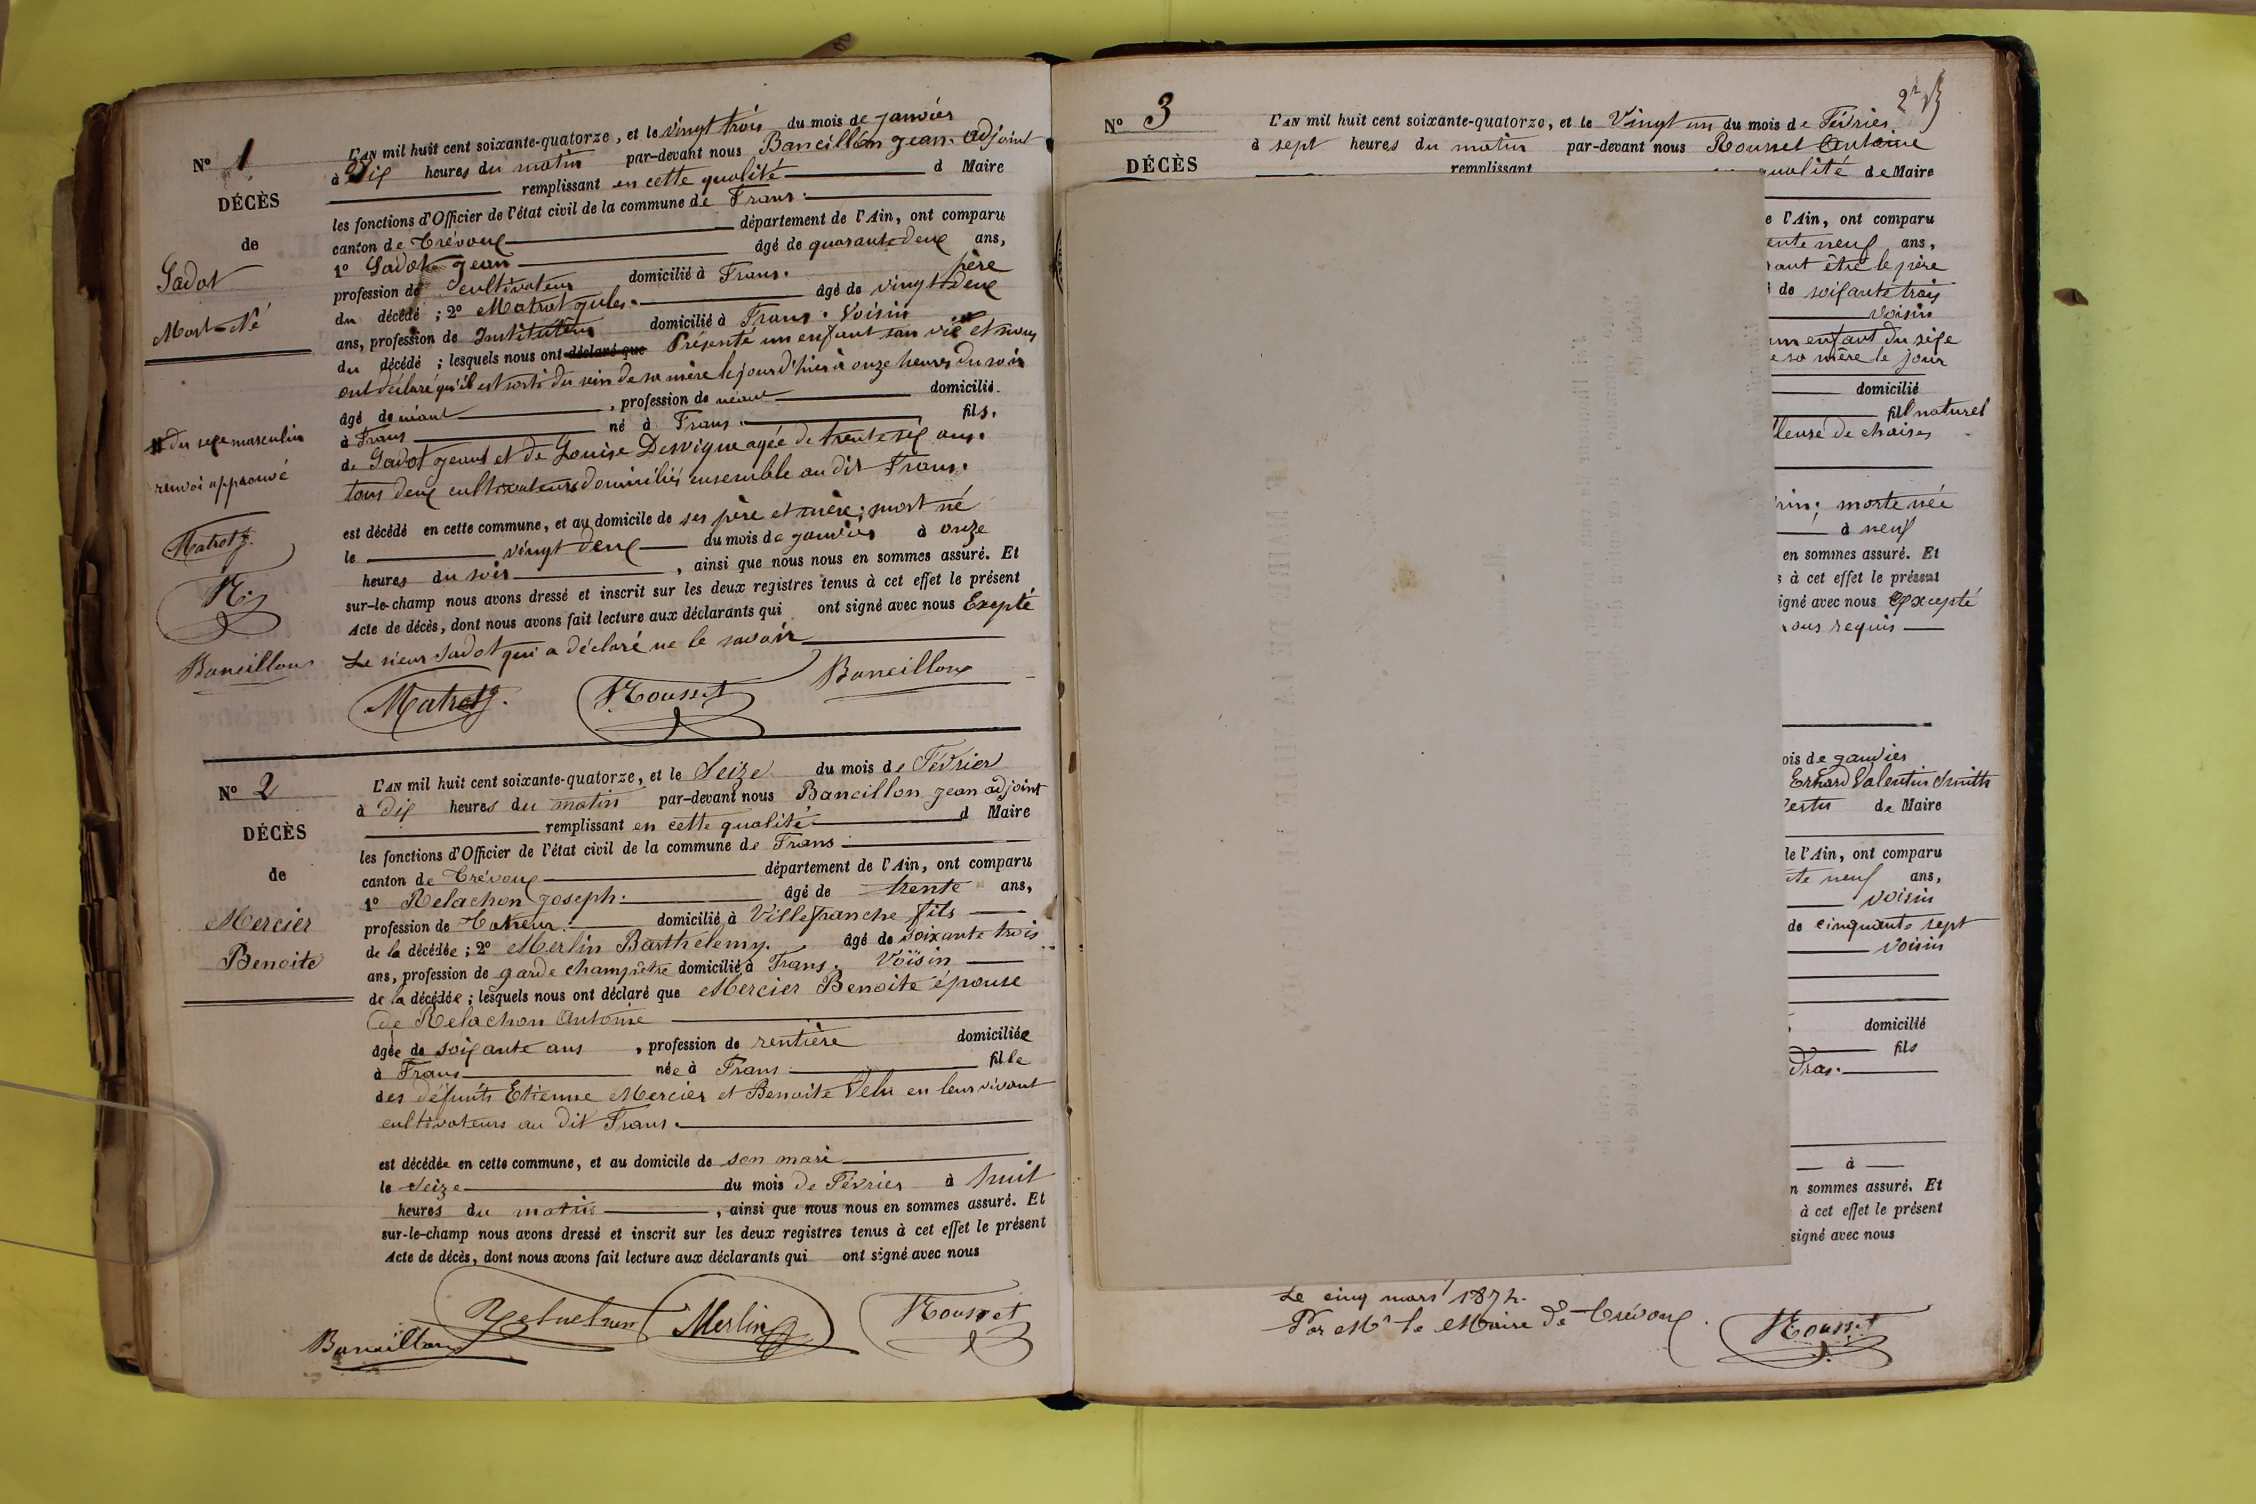 N° 1
DÉCÈS
de
Sadot
Mort-Né
du sexe masculin
renvoi approuvé
Matrot
R.
Bancillon
L'AN mil huit cent soixante-quatorze, et le vingt trois du mois de janvier
à Dix heures du matin par-devant nous Bancillon Jean adjoint
remplissant en cette qualité d Maire
les fonctions d'Officier de l'état civil de la commune de Frans
canton de Trévoux département de l'Ain, ont comparu
1° Sadot Jean âgé de quarante deux ans,
profession de cultivateur domicilié à Frans. père
du décédé ; 2° Matrot Jules. âgé de vingt deux
ans, profession de Instituteur domicilié à Frans. Voisin
du décédé ; lesquels nous ont déclaré que Présenté un enfant san vie et nous
ont déclaré qu'il est sorti du sein de sa mère le jour d'hier à onze heures du soir
âgé de néant, profession de néant domicilié
à Frans né à Frans fils.
de Sadot Jean et de Louise Desvigne agée de trente six ans.
tous deux cultivateurs domiciliés ensemble au dit Frans.
est décédé en cette commune, et au domicile de ses père et mère; mort né
le vingt deux du mois de janvier à onze
heures du soir, ainsi que nous nous en sommes assuré. Et
sur-le-champ nous avons dressé et inscrit sur les deux registres tenus à cet effet le présent
Acte de décès, dont nous avons fait lecture aux déclarants qui ont signé avec nous Exepté
Le sieur Sadot qui a déclaré ne le savoir
Matrot J. Rousset Bancillon
N° 2
DÉCÈS
de
Mercier
Benoite
L'AN mil huit cent soixante-quatorze, et le Seize du mois de Février
à Dix heures du matin par-devant nous Bancillon Jean adjoint
remplissant en cette qualité d Maire
les fonctions d'Officier de l'état civil de la commune de Frans
canton de Trévoux département de l'Ain, ont comparu
1° Relachon Joseph. âgé de trente ans,
profession de domicilié à Villefranche fils
de la décédée ; 2° Merlin Barthélemy. âgé de soixante trois
ans, profession de garde champêtre domicilié à Frans. Voisin
de la décédée ; lesquels nous ont déclaré que Mercier Benoite épouse
de Relachon Antoine
âgée de soixante ans, profession de rentière domiciliée
à Frans née à Frans fille
des défunts Etienne Mercier et Benoite Velu en leur vivant
cultivateurs au dit Frans.
est décédée en cette commune, et au domicile de son mari
le Seize du mois de Février à huit
heures du matin, ainsi que nous nous en sommes assuré. Et
sur-le-champ nous avons dressé et inscrit sur les deux registres tenus à cet effet le présent
Acte de décès, dont nous avons fait lecture aux déclarants qui ont signé avec nous
Relachon Merlin Rousset
Bancillon
N° 3
DÉCÈS
L'AN mil huit cent soixante-quatorze, et le Vingt un du mois de Février
à sept heures du matin par-devant nous Rousset Antoine
remplissant qualité de Maire
e l'Ain, ont comparu
ente neuf ans,
rant être le père
de soixante trois
voisin
un enfant du sexe
e sa mère le jour
domicilié
fill naturel
lleuse de chaises
in; morte née
à neuf
en sommes assuré. Et
s à cet effet le présent
igné avec nous Excepté
ous requis
ois de janvier
Erhard Valentin Smith
de Maire
de l'Ain, ont comparu
te neuf ans,
voisin
de cinquante sept
voisin
domicilié
fils
à
n sommes assuré. Et
à cet effet le présent
signé avec nous
Le cinq mars 1874.
Por Mr le Maire de Trévoux
Rousset